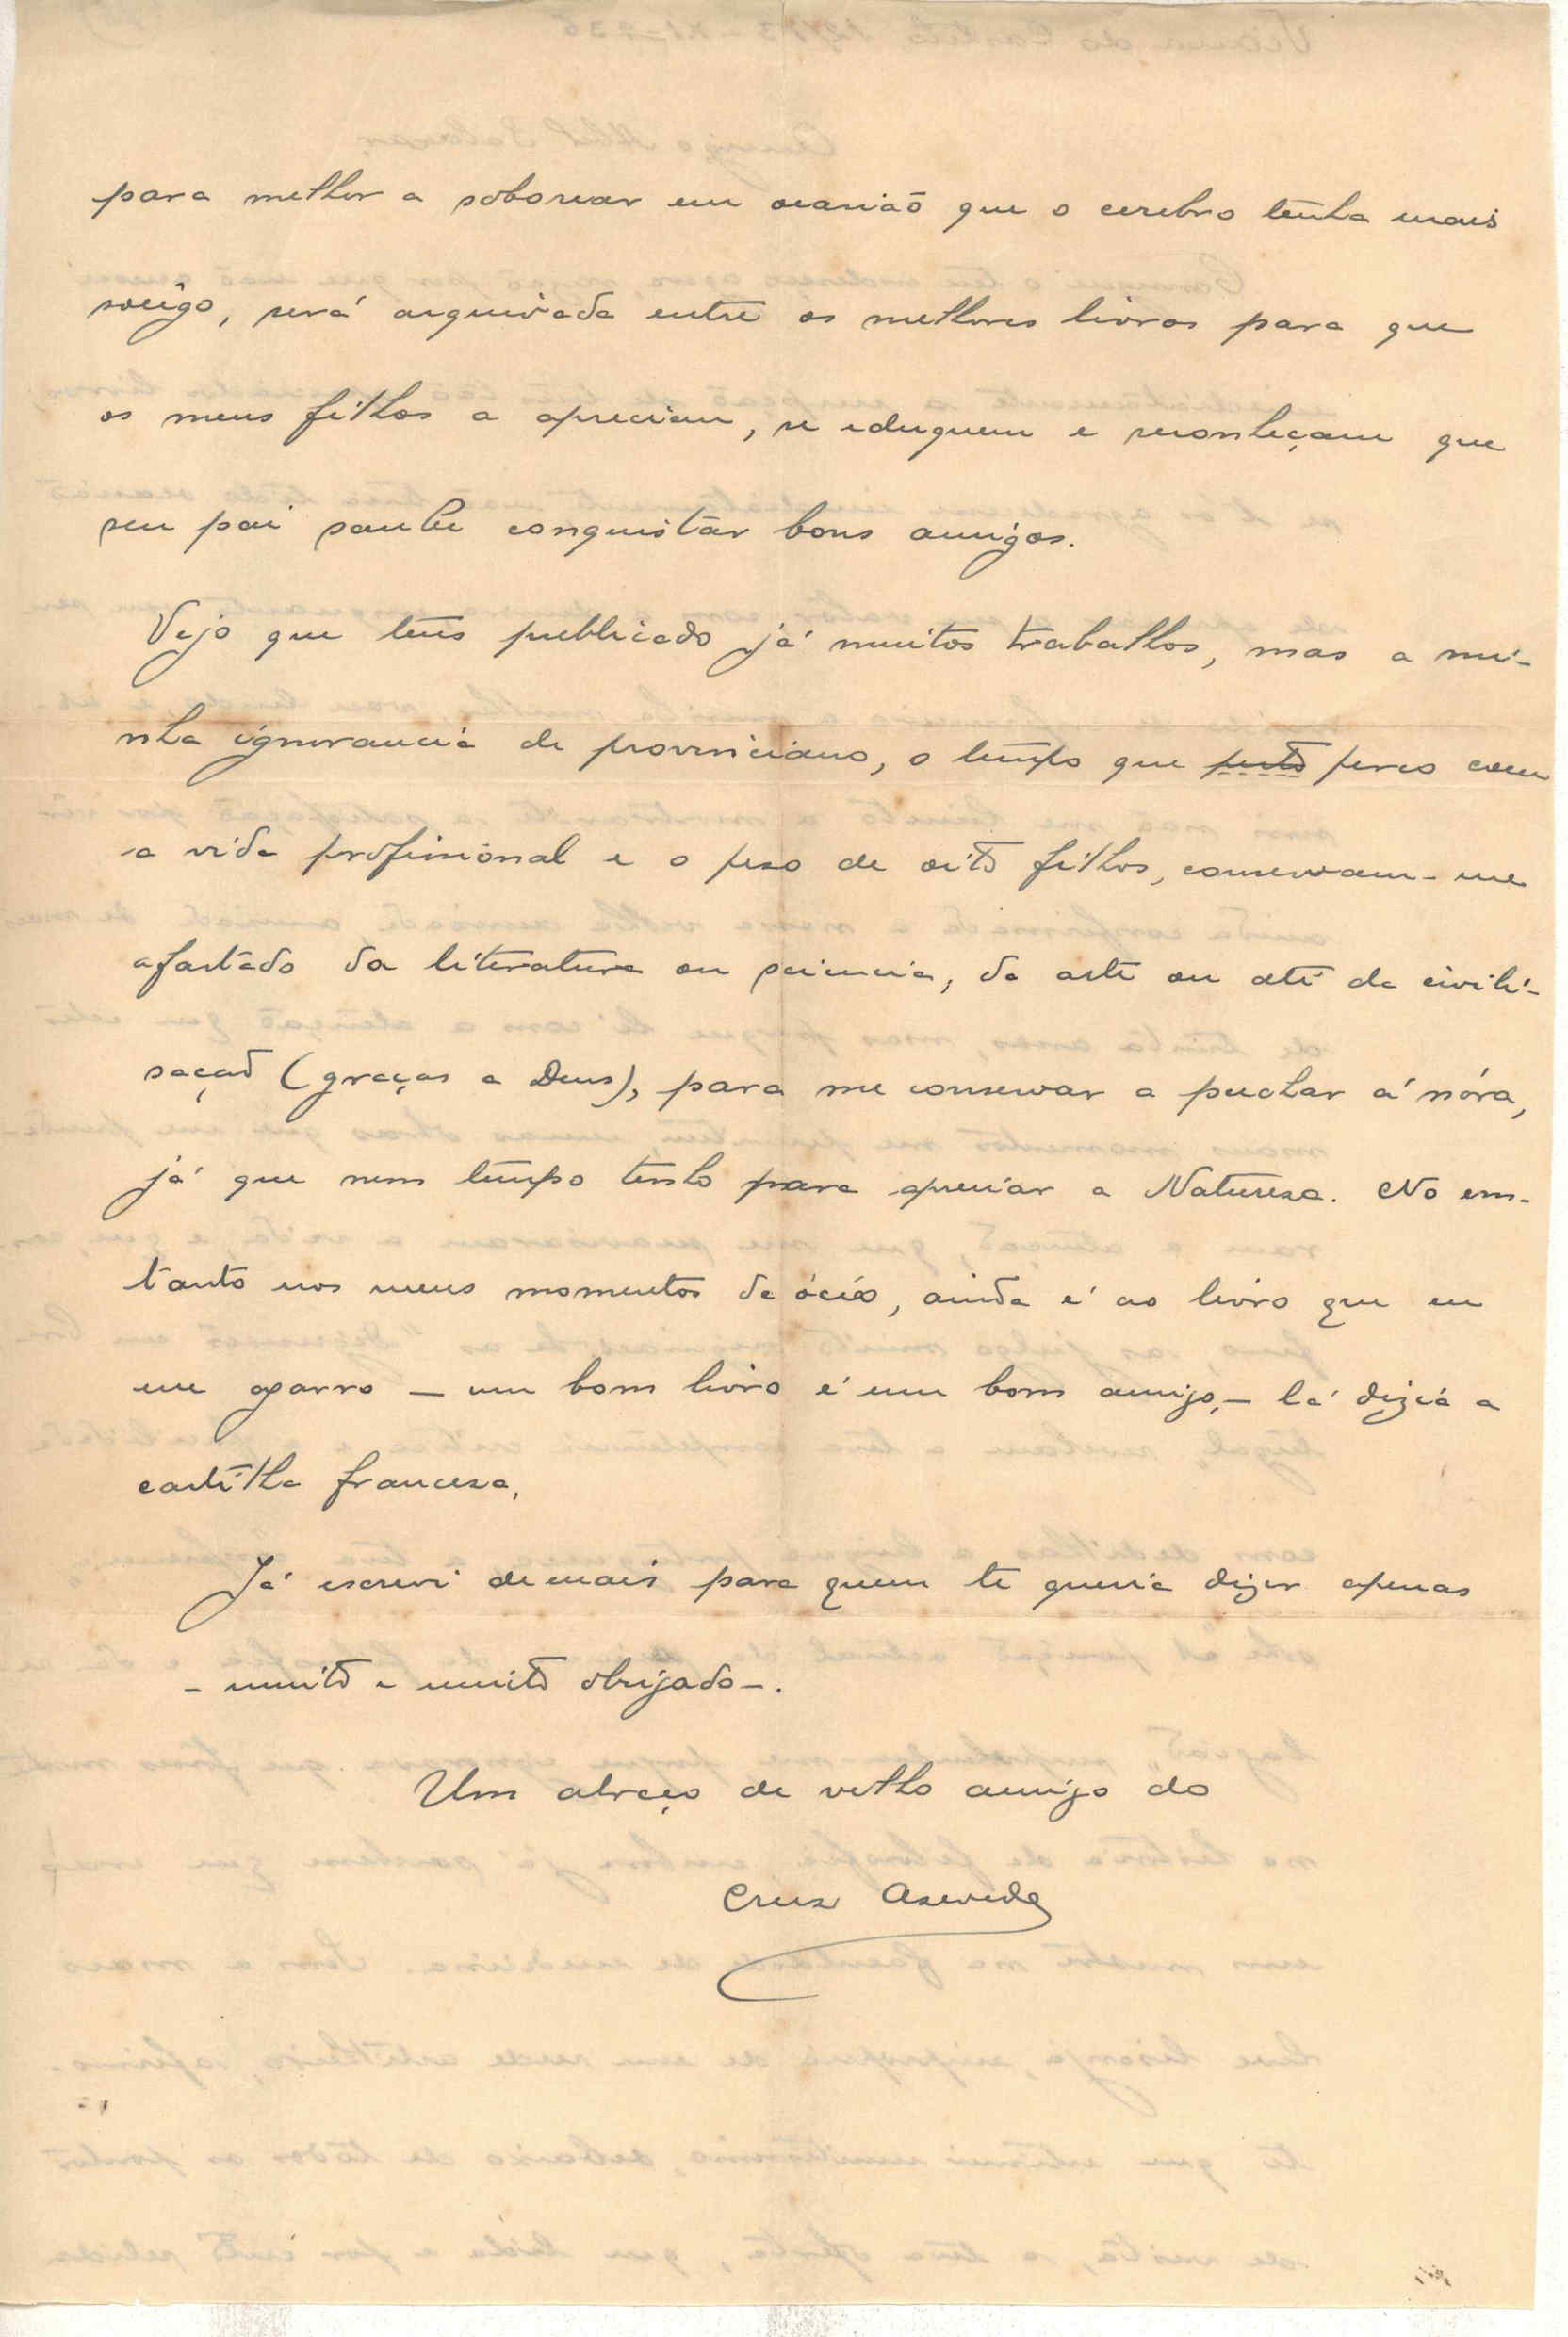 para melhor a soborear em ocasião que o cerebro tenha mais
socêgo, será arquivada entre os melhores livros para que
os meus filhos a apreciem, se eduquem e reconheçam que
seu pai soube conquistar bons amigos.
Vejo que tens publicado já muitos trabalhos, mas a mi-
nha ignorancia de provinciano, o tempo que perco com
a vida profissional e o peso de oito filhos, conservam-me
afastado da literatura ou sciencia, da arte ou até da civili-
sação (graças a Deus), para me conservar a puchar á nóra,
já que nem tempo tenho para apreciar a Naturesa. No em-
tanto nos meus momentos de ócio, ainda é ao livro que eu
me agarro — um bom livro é um bom amigo, — lá dizia a
cartilha francesa.
Já escrevi demais para quem te queria dizer apenas
- muito e muito obrigado -.
Um abraço de velho amigo do
Cruz Azevedo